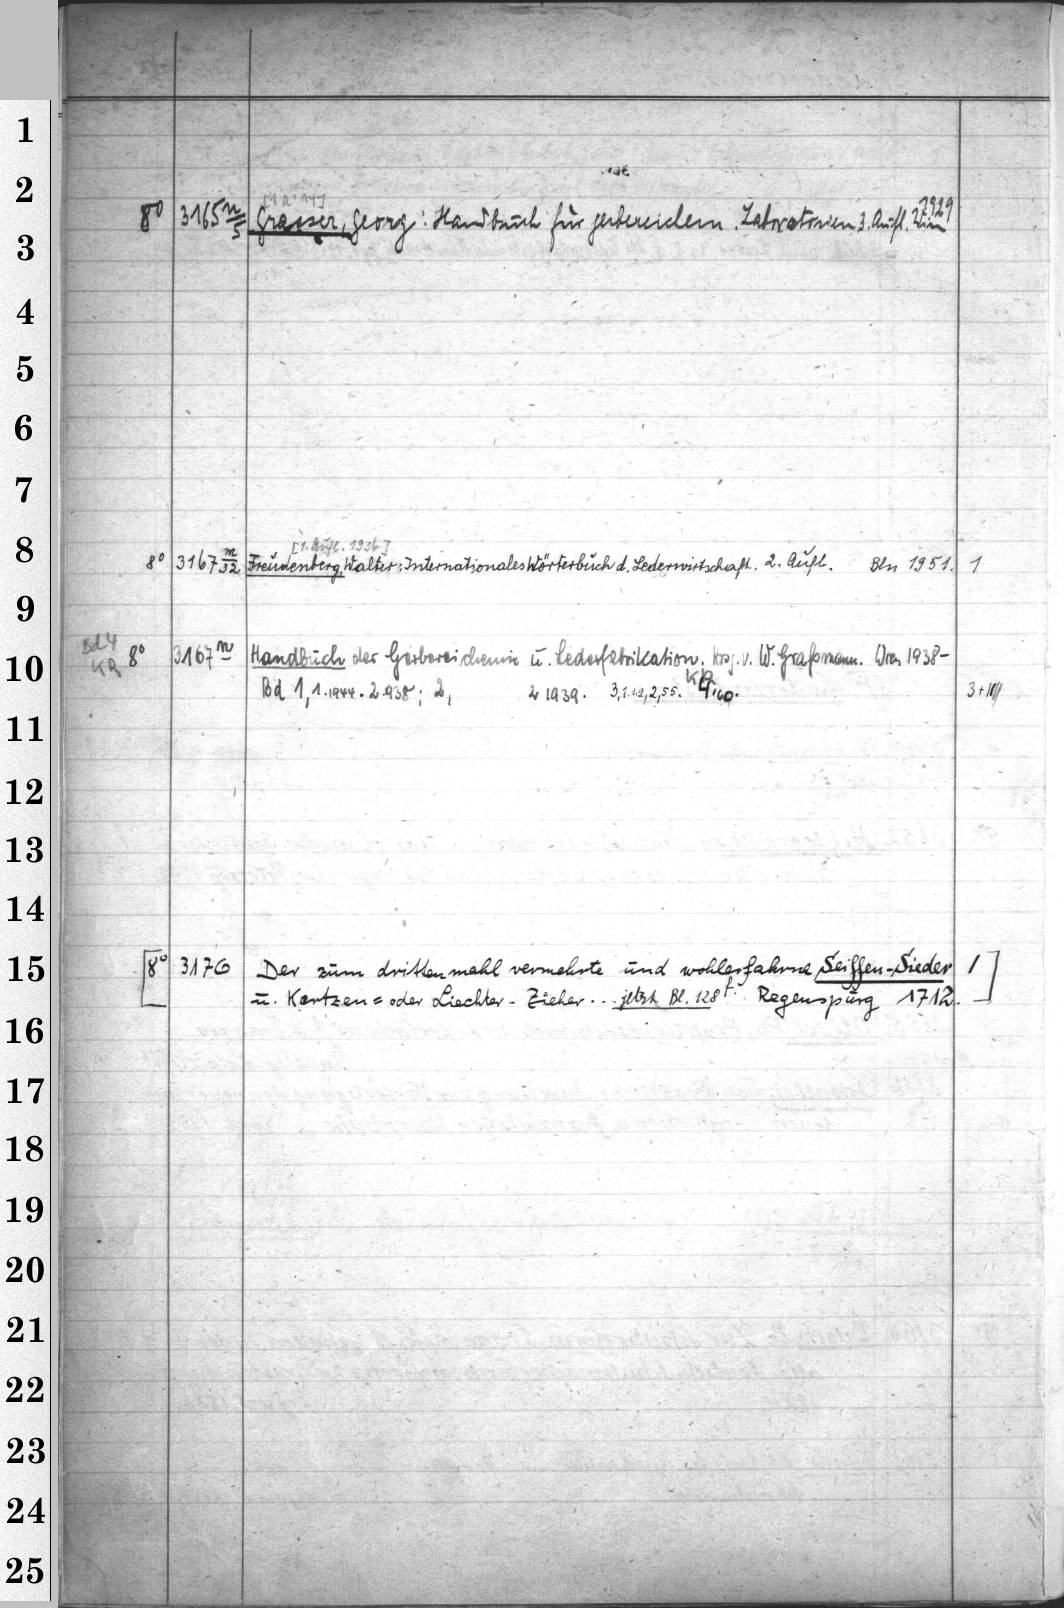 1
2
8° 3165 n/5 Grasser, Georg: Handbuch für gerbereichem. Laboratorien 3. Aufl. Wien 1929
3
4
5
6
7
8
[1. Aufl. 1936]
8° 3167 m/32 Freudenberg, Walter: Internationales Wörterbuch d. Lederwirtschaft. 2. Aufl. Bln 1951. 1
9
Bd 4 KR 8° 3167 n Handbuch der Gerbereichemie u. Lederfabrikation. Hrsg. v. W. Graßmann. Wien 1938-
10
Bd 1,1.1944. 2.938; 2, 2 1939. 3,1. 2,55. KR 4,60. 3+
11
12
13
14
15
[8° 3176 Der zum drittenmahl vermehrte und wohlerfahrne Seiffen-Sieder 1]
u. Kertzen= oder Liechter-Zieher... jetzt Bl. 128 f. Regenspurg 1712.
16
17
18
19
20
21
22
23
24
25